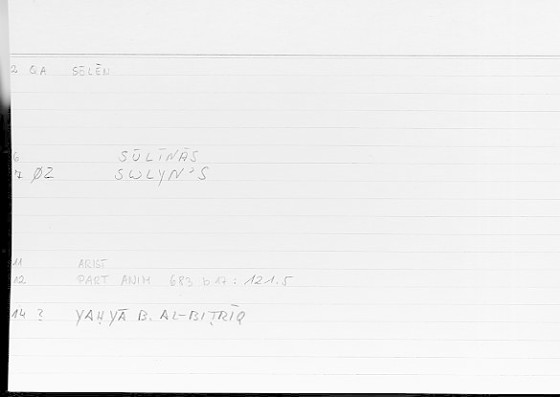 2 QA SĒLĒN
6 SŪLĪNĀS
7 ØZ SWLYN'S
11 ARIST
12 PART ANIM 683 b 17 : 121.5
14 ? YAḤYĀ B. AL-BIṬRĪQ